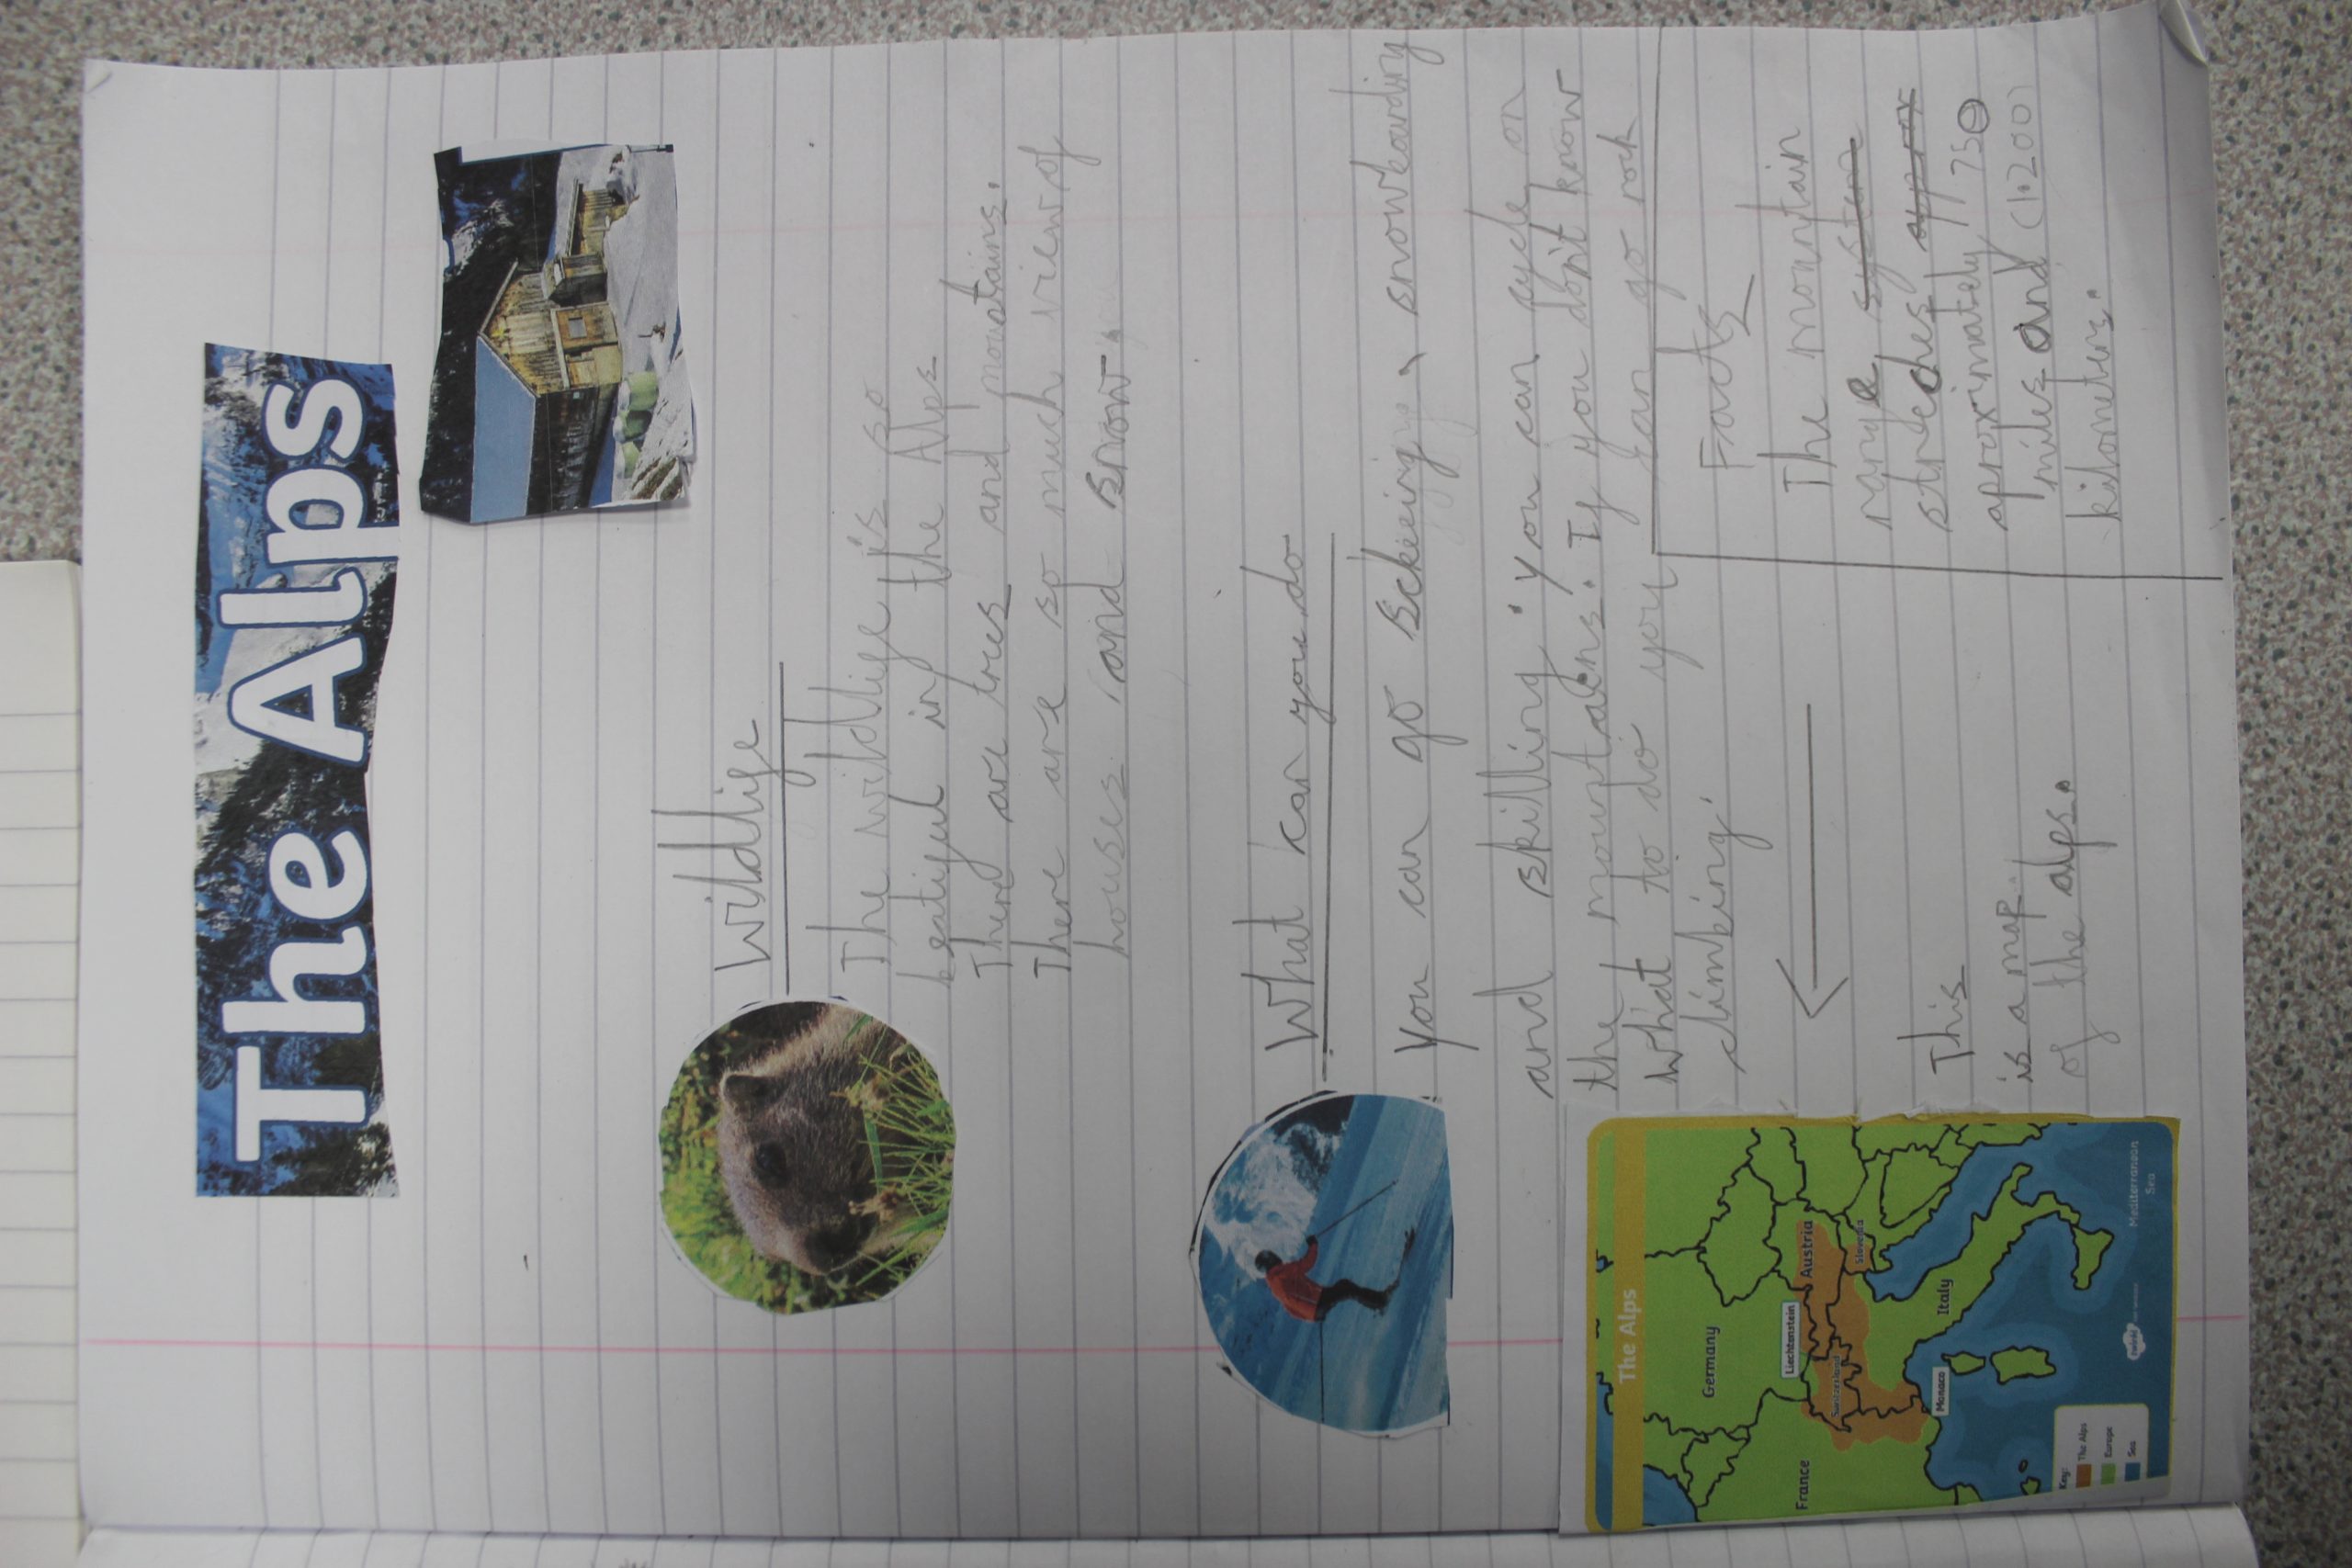 The Alps
wildlife
The wildlife is so
beatiful in the Alps
There are trees and mountains.
There are so much view of
houses and snow.
What can you do
You can go sckeeing, snowboarding
and skilling. You can cycle on
the mountains. If you don't know
what to do you can go rock
climbing.
This
is a map
of the alps.
Facts
The mountain
range system
stretches approx
approximately 750
miles and (1.200)
kilometers.
The Alps
Germany
Liechtenstein
Austria
Slovenia
Switzerland
France
Italy
Monaco
Mediterranean
Sea
Key:
The Alps
Europe
Sea
twinkl